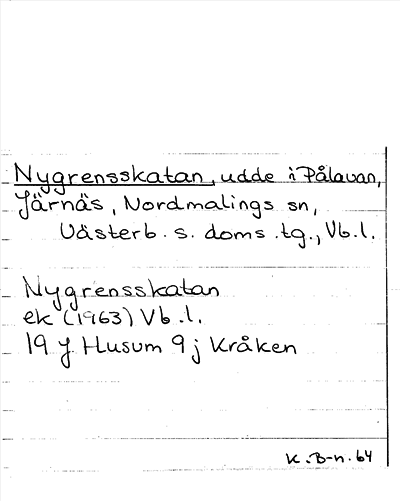 Nygrensskatan, udde i Pålavan,
Järnäs, Nordmalings sn,
Västerb. s. doms.tg., Vb.l.
Nygrensskatan
ek (1963) Vb.l.
19 J Husum 9 j Kråken
K.B-n.64